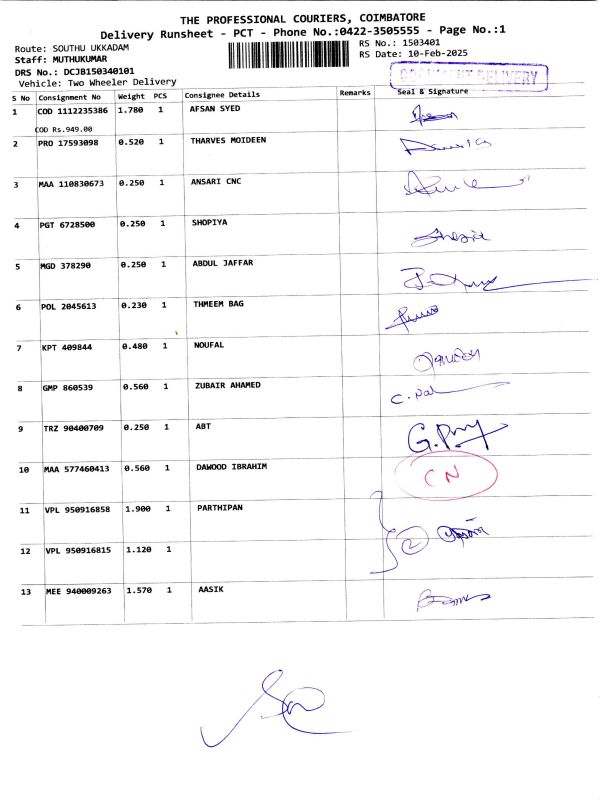 THE PROFESSIONAL COURIERS, COIMBATORE
Delivery Runsheet - PCT - Phone No.:0422-3505555 - Page No.:1
Route: SOUTHU UKKADAM
RS No.: 1503401
Staff: MUTHUKUMAR
RS Date: 10-Feb-2025
DRS No.: DCJB150340101
Vehicle: Two Wheeler Delivery
DELIVERY
S No Consignment No Weight PCS Consignee Details Remarks Seal & Signature
1 COD 1112235386 1.780 1 AFSAN SYED
COD Rs.949.00
2 PRO 17593098 0.520 1 THARVES MOIDEEN
3 MAA 110830673 0.250 1 ANSARI CNC
4 PGT 6728500 0.250 1 SHOPIYA
5 MGD 378290 0.250 1 ABDUL JAFFAR
6 POL 2045613 0.230 1 THMEEM BAG
7 KPT 409844 0.480 1 NOUFAL
8 GMP 860539 0.560 1 ZUBAIR AHAMED
9 TRZ 90400709 0.250 1 ABT
10 MAA 577460413 0.560 1 DAWOOD IBRAHIM CN
11 VPL 950916858 1.900 1 PARTHIPAN
2
12 VPL 950916815 1.120 1
13 MEE 940009263 1.570 1 AASIK